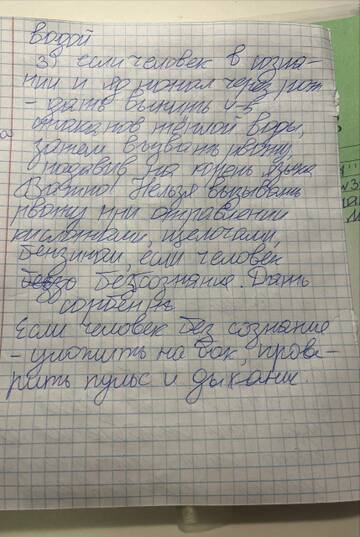 водой
3) если человек в созна-
нии и яд попал через рот
- дать выпить 4-5
стаканов тёплой воды,
затем вызвать рвоту,
надавив на корень языка
Важно! Нельзя вызывать
рвоту при отравлении
кислотами, щелочами,
бензином, если человек
без сознания. Дать
сорбент.
Если человек без сознания
- уложить на бок, прове-
рить пульс и дыхание.